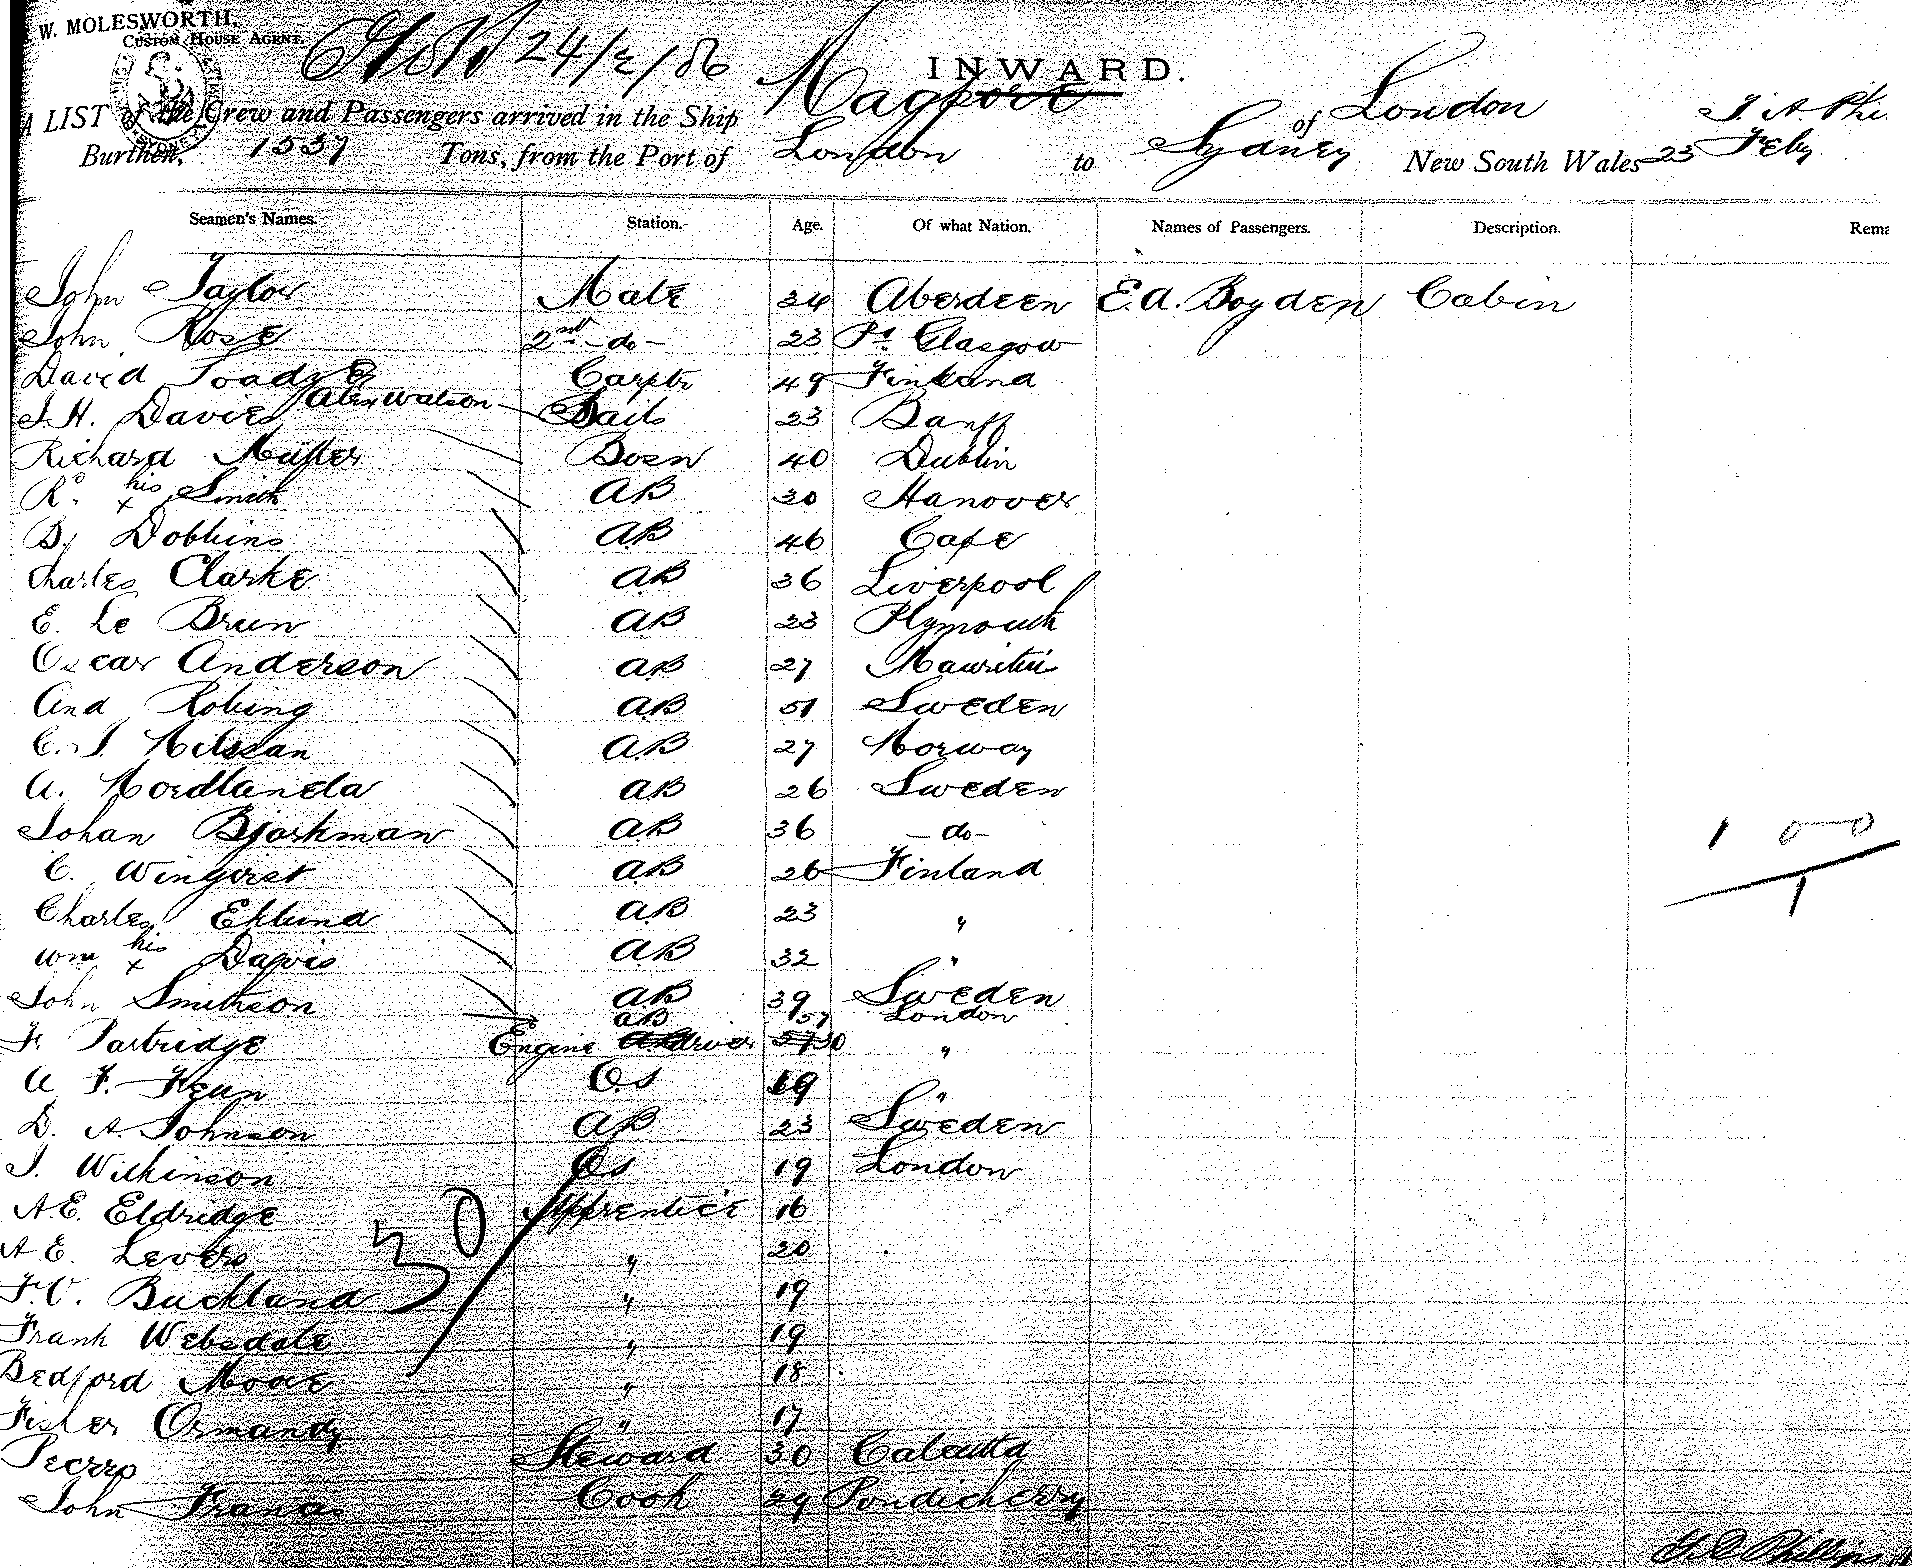 W. MOLESWORTH,
CUSTOM HOUSE AGENT.
24/2/86
INWARD.
A LIST of the Crew and Passengers arrived in the Ship Nagpore of London
Burthen, Tons, from the Port of London to Sydney New South Wales 23 Feby
Seamen's Names. Station. Age. Of what Nation. Names of Passengers. Description.
John Taylor Mate 34 Aberdeen E.A. Boyden Cabin
John Rose 2nd -do- 23 Pt. Glasgow
David Carptr 49 Finland
Alex Watson
J.H. Davies Sails 23 Banff
Richard Müller Bosn 40 Dublin
Ro. his x Smith AB 20 Hanover
B. Dobbins AB 46 Cape
Charles Clarke AB 36 Liverpool
E. Le Brun AB 23 Plymouth
Oscar Anderson AB 27
And AB 51 Sweden
C. J. Nilssan AB 27 Norway
A. Nordlanda AB 26 Sweden
Johan Bjorkman AB 36 -do- 1
C. Wingvist AB 26 Finland
Charles Eklund AB 23 " 1
Wm his x Davis AB 32 "
John Smithson AB 39 Sweden
AB 57 London
F. Partridge Engine driver 30 "
A F. Kean O.S 19 "
D. A. Johnson AB 23 Sweden
J. Wilkinson OS 19 London
A.E. Eldridge Apprentice 16
A.E. Levers " 20
30
F.C. Buckland " 19
Frank Websdale " 19
Bedford Moore " 18
Fisher Ormandy " 17
Steward 30 Calcutta
John Francis Cook 29 Pondicherry